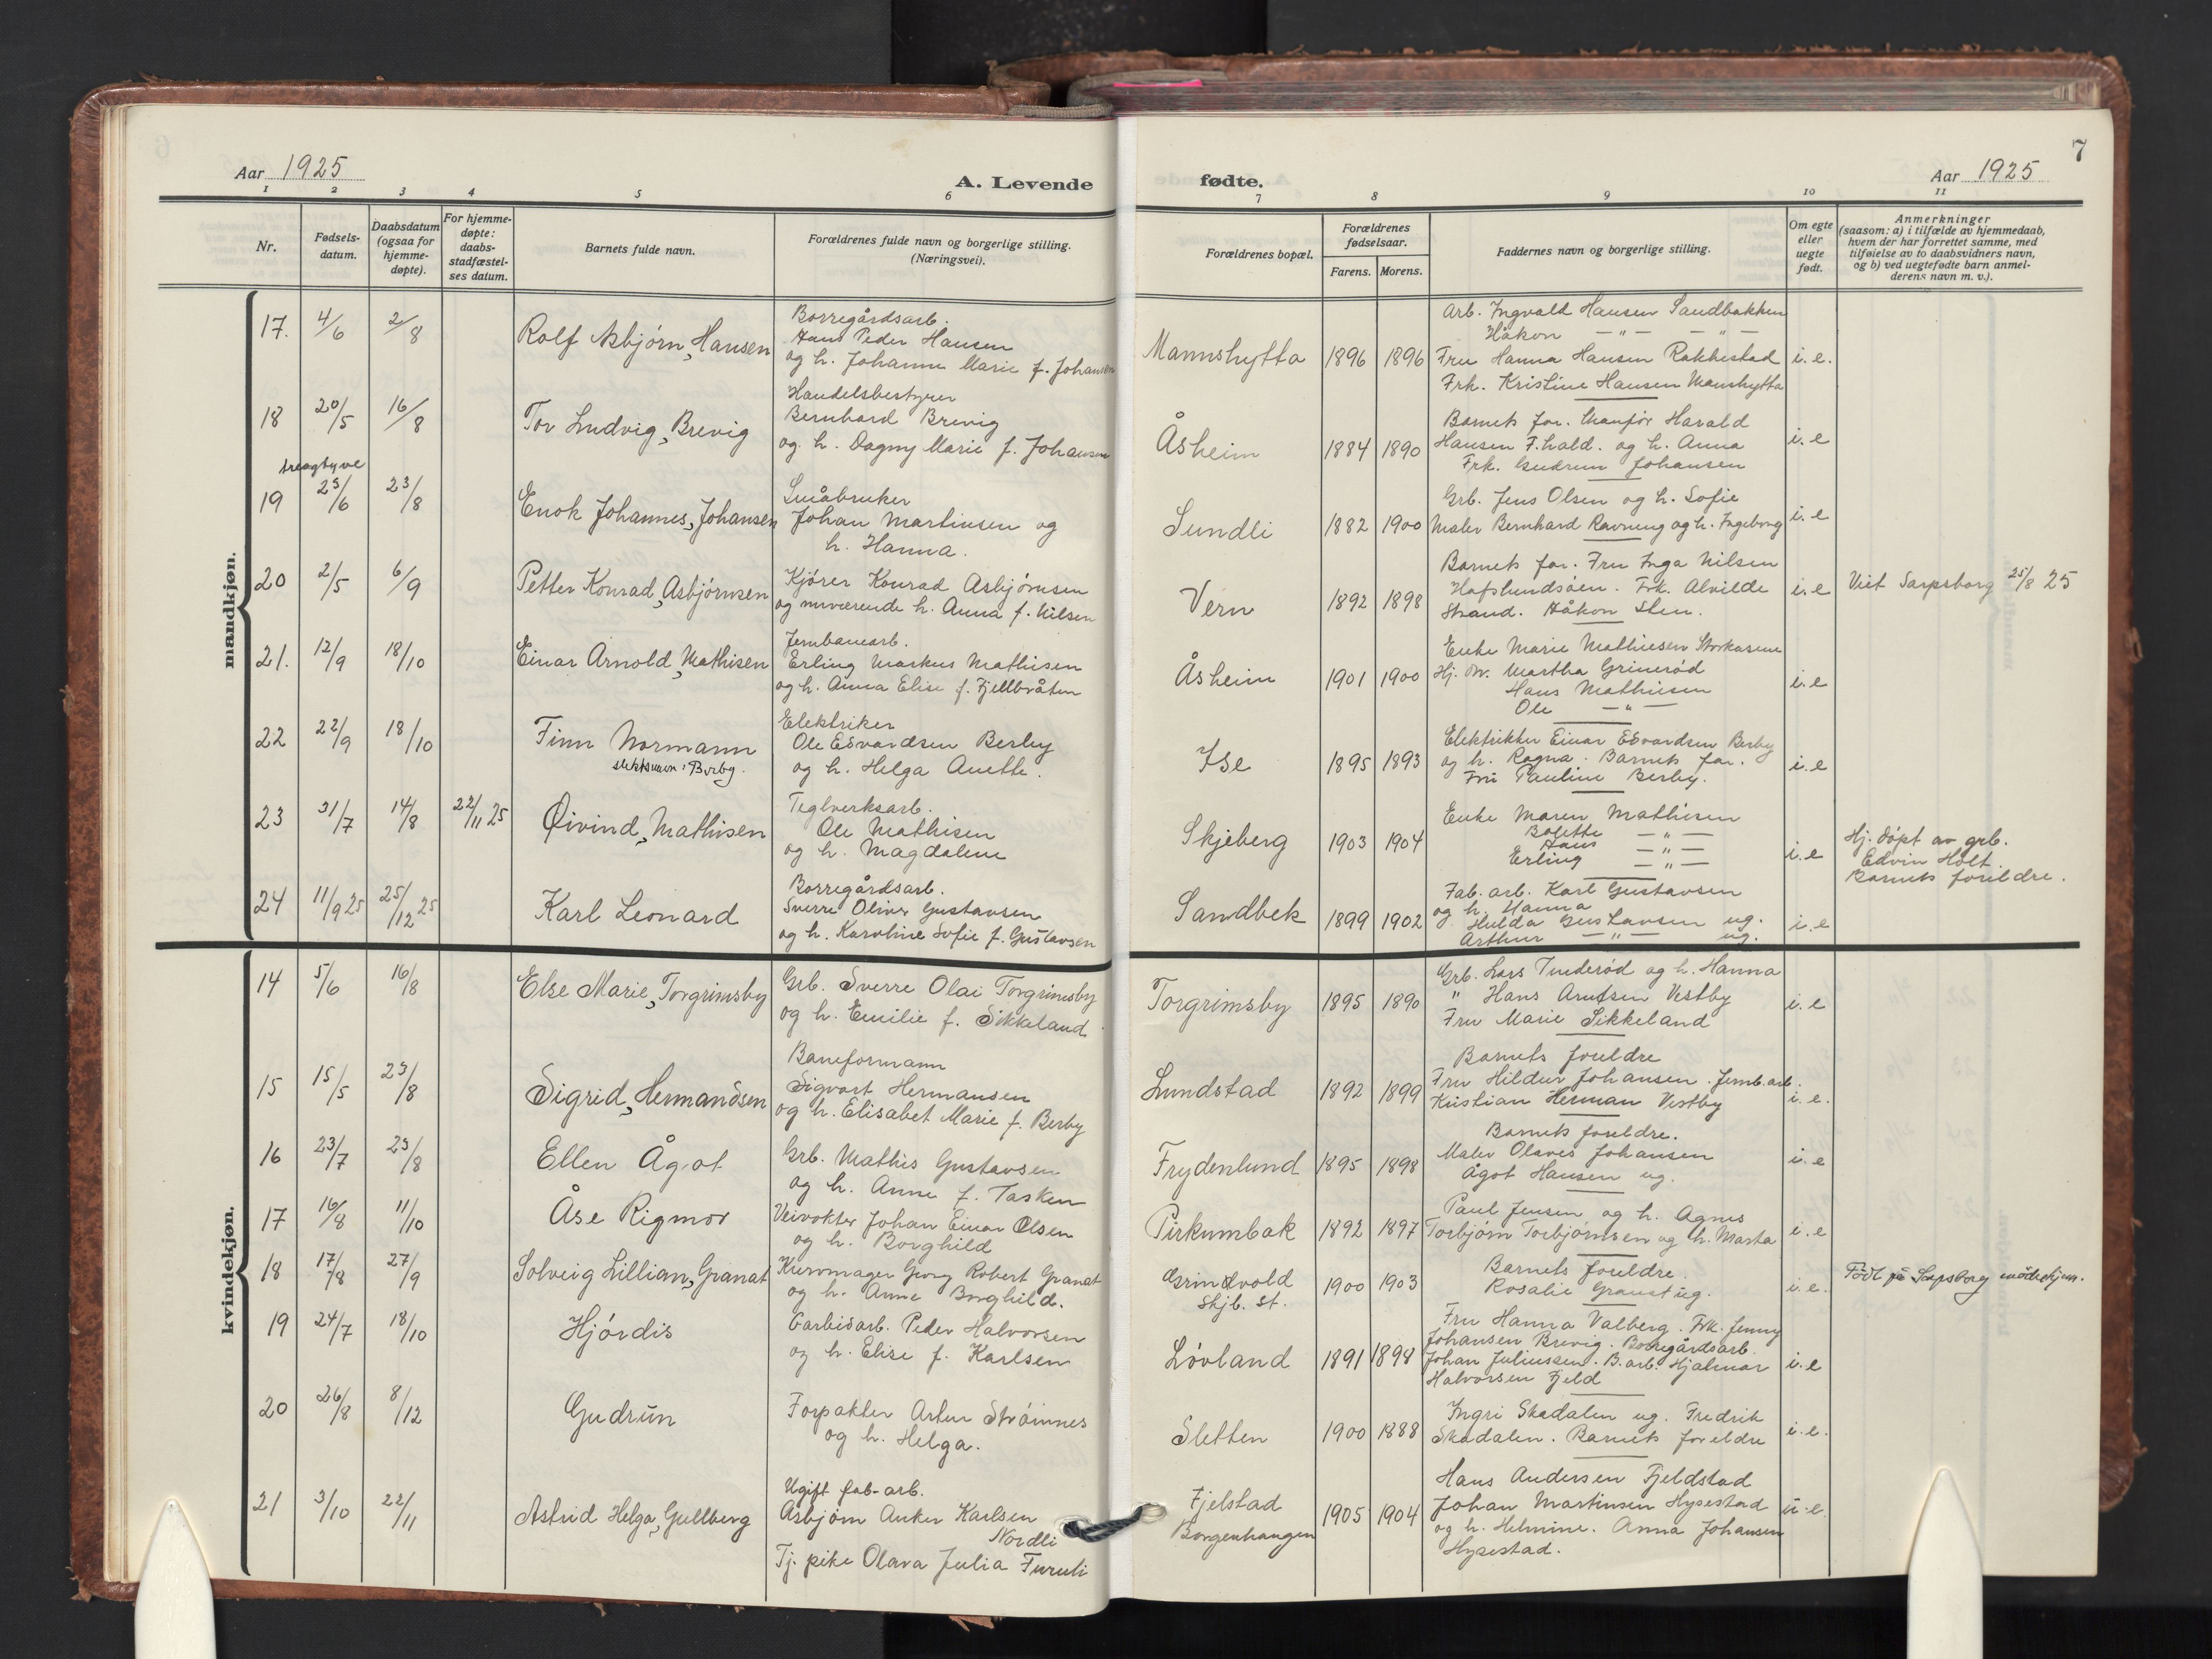 Aar 1925
A. Levende
1 2 3 4 5 6
Nr.
Fødsels-
datum.
Daabsdatum
(ogsaa for
hjemme-
døpte).
For hjemme-
døpte:
daabs-
stadfæstel-
ses datum.
Barnets fulde navn.
Forældrenes fulde navn og borgerlige stilling.
(Næringsvei).
mandkjøn.
17. 4/6 2/8 Rolf Asbjørn, Hansen
Borregårdsarb.
Hans Peder Hansen
og h. Johanne Marie f. Johansen
18 20/5 16/8 Tov Ludvig, Brevig
Handelsbestyrer
Bernhard Brevig
og h. Dagny Marie f. Johansen
treogtyve
19 23/6 23/8 Enok Johannes, Johansen
Småbruker
Johan Martinsen og
h. Hanna.
20 2/5 6/9 Petter Konrad, Asbjørnsen
Kjører Konrad Asbjørnsen
og nuværende h. Anna f. Nilsen
21. 12/9 18/10 Einar Arnold, Mathisen
Jernbanearb.
Erling Markus Mathisen
og h. Anna Elise f. Fjellbråten
22 22/9 18/10 Finn Normann
slektsnavn: Berby.
Elektriker
Ole Edvardsen Berby
og h. Helga Anette.
23 31/7 14/8 22/11 25 Øivind, Mathisen
Teglverksarb.
Ole Mathisen
og h. Magdalene
24 11/9 25 25/12 25 Karl Leonard
Borregårdsarb.
Sverre Oliver Gustavsen
og h. Karoline Sofie f. Gustavsen
kvindekjøn.
14 5/6 16/8 Else Marie, Torgrimsby
Grb. Sverre Olai Torgrimsby
og h. Emilie f. Sikkeland
15 15/5 23/8 Sigrid, Hermandsen
Baneformann
Sigvart Hermansen
og h. Elisabet Marie f. Berby
16 23/7 23/8 Ellen Ågot
Grb. Mathis Gustavsen
og h. Anne f. Tasken
17 16/8 11/10 Åse Rigmor
Veivokter Johan Einar Olsen
og h. Borghild
18 17/8 27/9 Solveig Lillian, Granat
Kurvmager Georg Robert Granat
og h. Anne Borghild.
19 24/7 18/10 Hjørdis
Carbidarb. Peder Halvorsen
og h. Elise f. Karlsen
20 26/8 8/12 Gudrun
Forpakter Artur Strømnes
og h. Helga.
21 3/10 22/11 Astrid Helga, Gullberg
Ugift fab-arb.
Asbjørn Anker Karlsen
Nordli
Tj. pike Olava Julia Furuli
7
fødte.
Aar 1925
7 8 9 10 11
Forældrenes bopæl.
Forældrenes
fødselsaar.
Farens. Morens.
Faddernes navn og borgerlige stilling.
Om egte
eller
uegte
født.
Anmerkninger
(saasom: a) i tilfælde av hjemmedaab,
hvem der har forrettet samme, med
tilføielse av to daabsvidners navn,
og b) ved uegtefødte barn anmel-
derens navn m. v.).
Arb. Ingvald Hansen Sandbakken
Håkon — " — — " —
Mannshytta 1896 1896 Fru Hanna Hansen Rakkestad i. e.
Frk. Kristine Hansen Manshytta
Barnets for. Harald
Åsheim 1884 1890 Hansen F.hald. og h. Anna i. e
Frk. Gudrun Johansen
Grb. Jens Olsen og h. Sofie
Sundli 1882 1900 Maler Bernhard Ravneng og h. Ingeborg i. e
Barnets for. Fru Inga Nilsen
Vern 1892 1898 Hafslundsøen. Frk. Alvilde i. e Viet Sarpsborg 25/8 25
Strand. Håkon Sten.
Enke Marie Mathiesen
Åsheim 1901 1900 Hj. Martha Grinerød
Hans Mathiesen i. e
Ole — " —
Elektriker Einar Edvardsen Berby
Ise 1895 1893 og h. Ragna. Barnets for. i. e
Fru Pauline Berby.
Enke Maren Mathisen
Bolette — " —
Skjeberg 1903 1904 Hans — " —
Erling — " — i. e
Hj. døpt av grb.
Edvin Holt.
Barnets foreldre.
Fab. arb. Karl Gustavsen
og h. Hanna
Sandbek 1899 1902 Hulda Gustavsen ug. i. e
Arthur — " — ug.
Grb. Lars Tinderød og h. Hanna
Torgrimsby 1895 1890 " Hans Arntsen Vestby i. e
Fru Marie Sikkeland
Barnets foreldre
Lundstad 1892 1899 Fru Hildur Johansen. Jernb.arb.
Kristian Herman Vestby i. e.
Barnets foreldre.
Frydenlund 1895 1898 Maler Olaves Johansen i. e
Ågot Hansen ug.
Paul Jensen og h. Agnes
Pirkumbak 1892 1897 Torbjørn Torbjørnsen og h. Marta i. e
Grindvold
Skjb. st. 1900 1903 Barnets foreldre.
Rosalie Granat ug. i. e. Født på Sarpsborg mødrehjem.
Fru Hanna Valberg. Frk. Jenny
Johansen Brevig. Borregårdsarb.
Løvland 1891 1898 Johan Juliussen. B. arb. Hjalmar i. e
Halvorsen Fjeld
Ingri Skadalen ug. Fredrik
Sletten 1900 1888 Skadalen. Barnets foreldre i. e.
Hans Andersen Fjeldstad
Fjelstad
Borgenhaugen 1905 1904 Johan Martinsen Hysestad u. e
og h. Helmine. Anna Johansen
Hysestad.